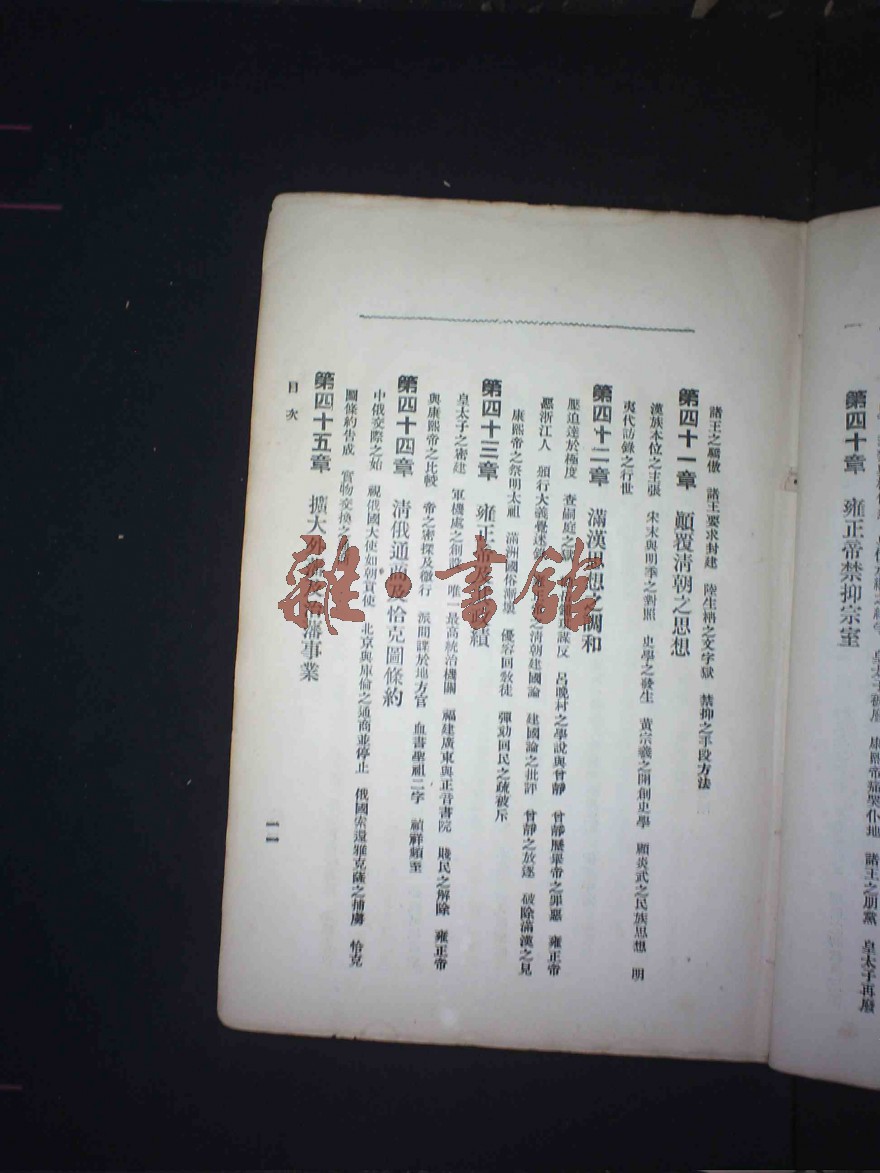 第四十章 雍正帝禁抑宗室
康熙帝痛哭仆地 諸王之朋黨 皇太子再廢
諸王之驕傲 諸王要求封建 陸生楠之文字獄 禁抑之手段方法
第四十一章 顛覆清朝之思想
漢族本位之主張 宋末與明季之對照 史學之發生 黃宗羲之開創史學 顧炎武之民族思想 明
夷代訪錄之行世
第四十二章 滿漢思想之調和
壓迫達於極度 查嗣庭之獄 謀反 呂晚村之學說與曾靜 曾靜歷舉帝之罪惡 雍正帝
惡浙江人 頒行大義覺迷錄 之清朝建國論 建國論之批評 曾靜之放逐 破除滿漢之見
康熙帝之祭明太祖 滿洲國俗漸壞 優容回教徒 彈劾回民之疏被斥
第四十三章 雍正帝及其政績
皇太子之密建 軍機處之創設 唯一最高統治機關 福建廣東與正音書院 賤民之解除 雍正帝
與康熙帝之比較 帝之密探及微行 派間諜於地方官 血書聖祖二字 禎祥頻至
第四十四章 清俄通商及恰克圖條約
中俄交際之始 視俄國大使如朝貢使 北京與庫倫之通商並停止 俄國索還雅克薩之捕虜 恰克
圖條約告成 實物交換之
第四十五章 擴大外藩及治藩事業
目次
一一
雜·書館